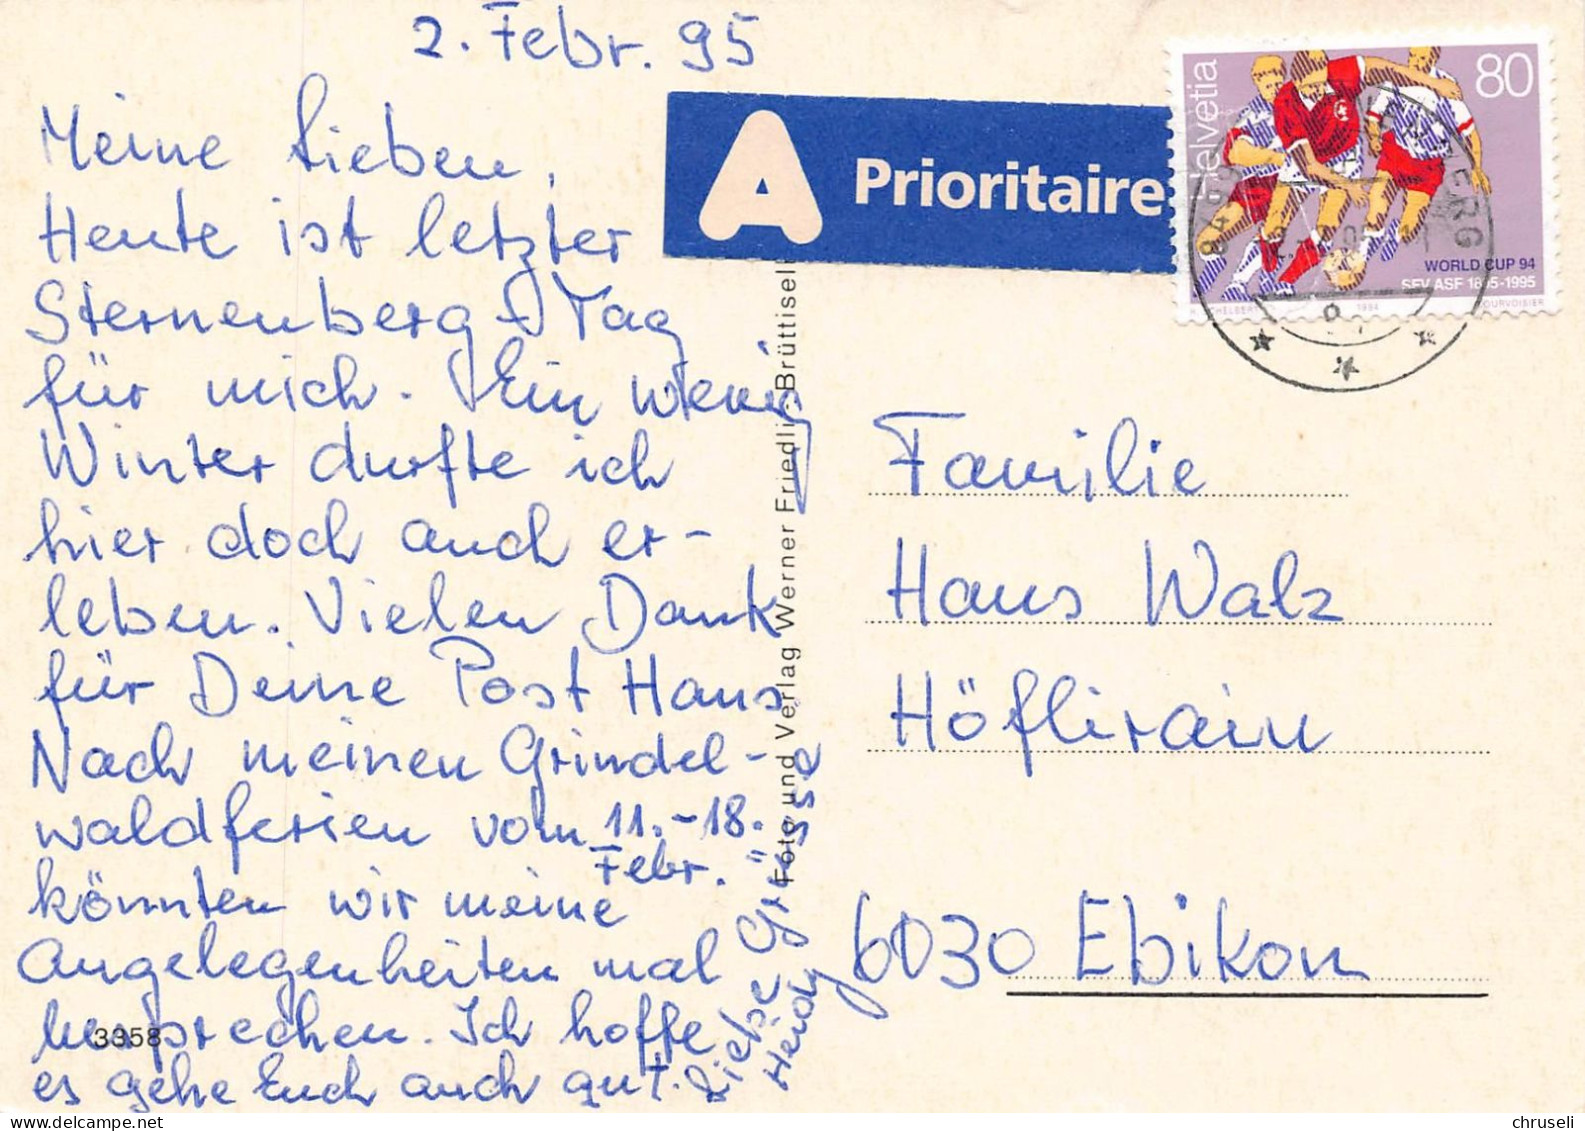 2. Febr. 95
Meine Lieben,
Heute ist letzter
Sternenberg-Tag
für mich. Ein wenig
Winter durfte ich
hier doch auch er-
leben. Vielen Dank
für Deine Post Hans.
Nach meinen Grindel-
waldferien vom 11.-18.
Febr.
könnten wir meine
Angelegenheiten mal
besprechen. Ich hoffe
es gehe Euch auch gut.
Liebe Grüsse
Heidy
3358
Foto und Verlag Werner Friedli, Brüttisel
A Prioritaire
Helvetia
80
WORLD CUP 94
SFV ASF 1895-1995
1994
COURVOISIER
ERG
Familie
Hans Walz
Höflirain
6030 Ebikon
chruseli